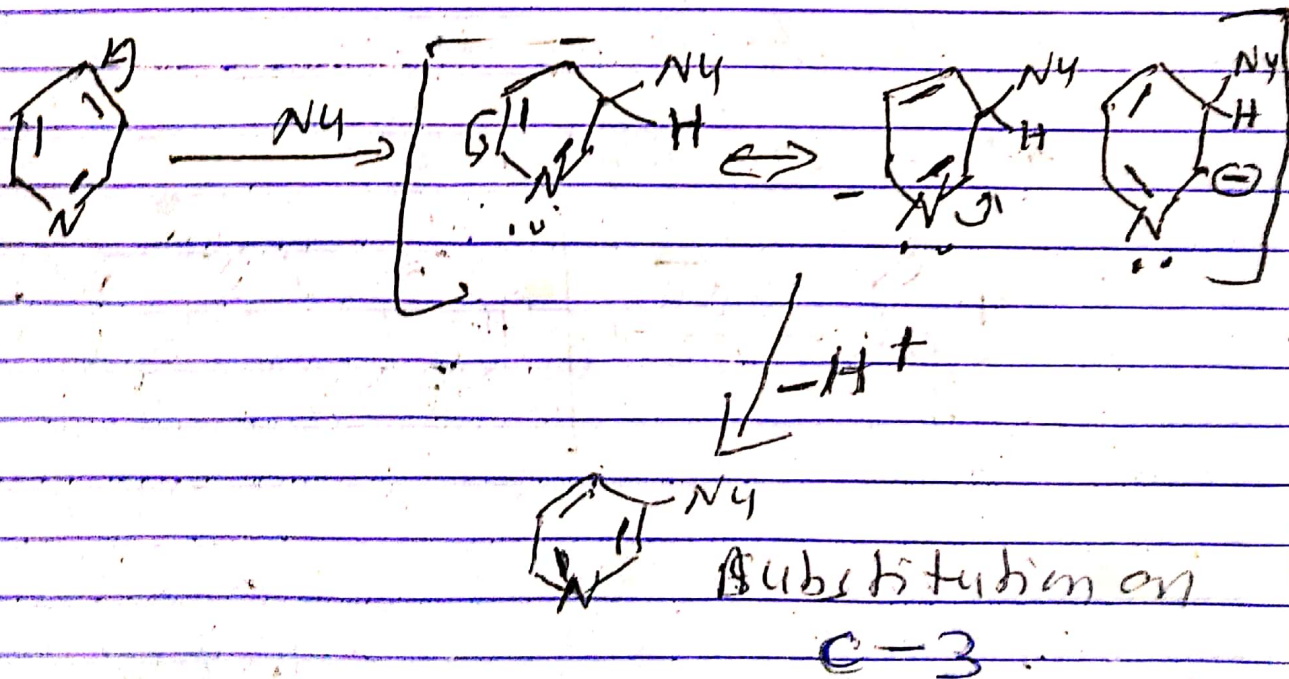 Nu
Nu
H
N
N
Nu
H
N
Nu
H
N
-H+
Nu
N
Substitution on
C-3.